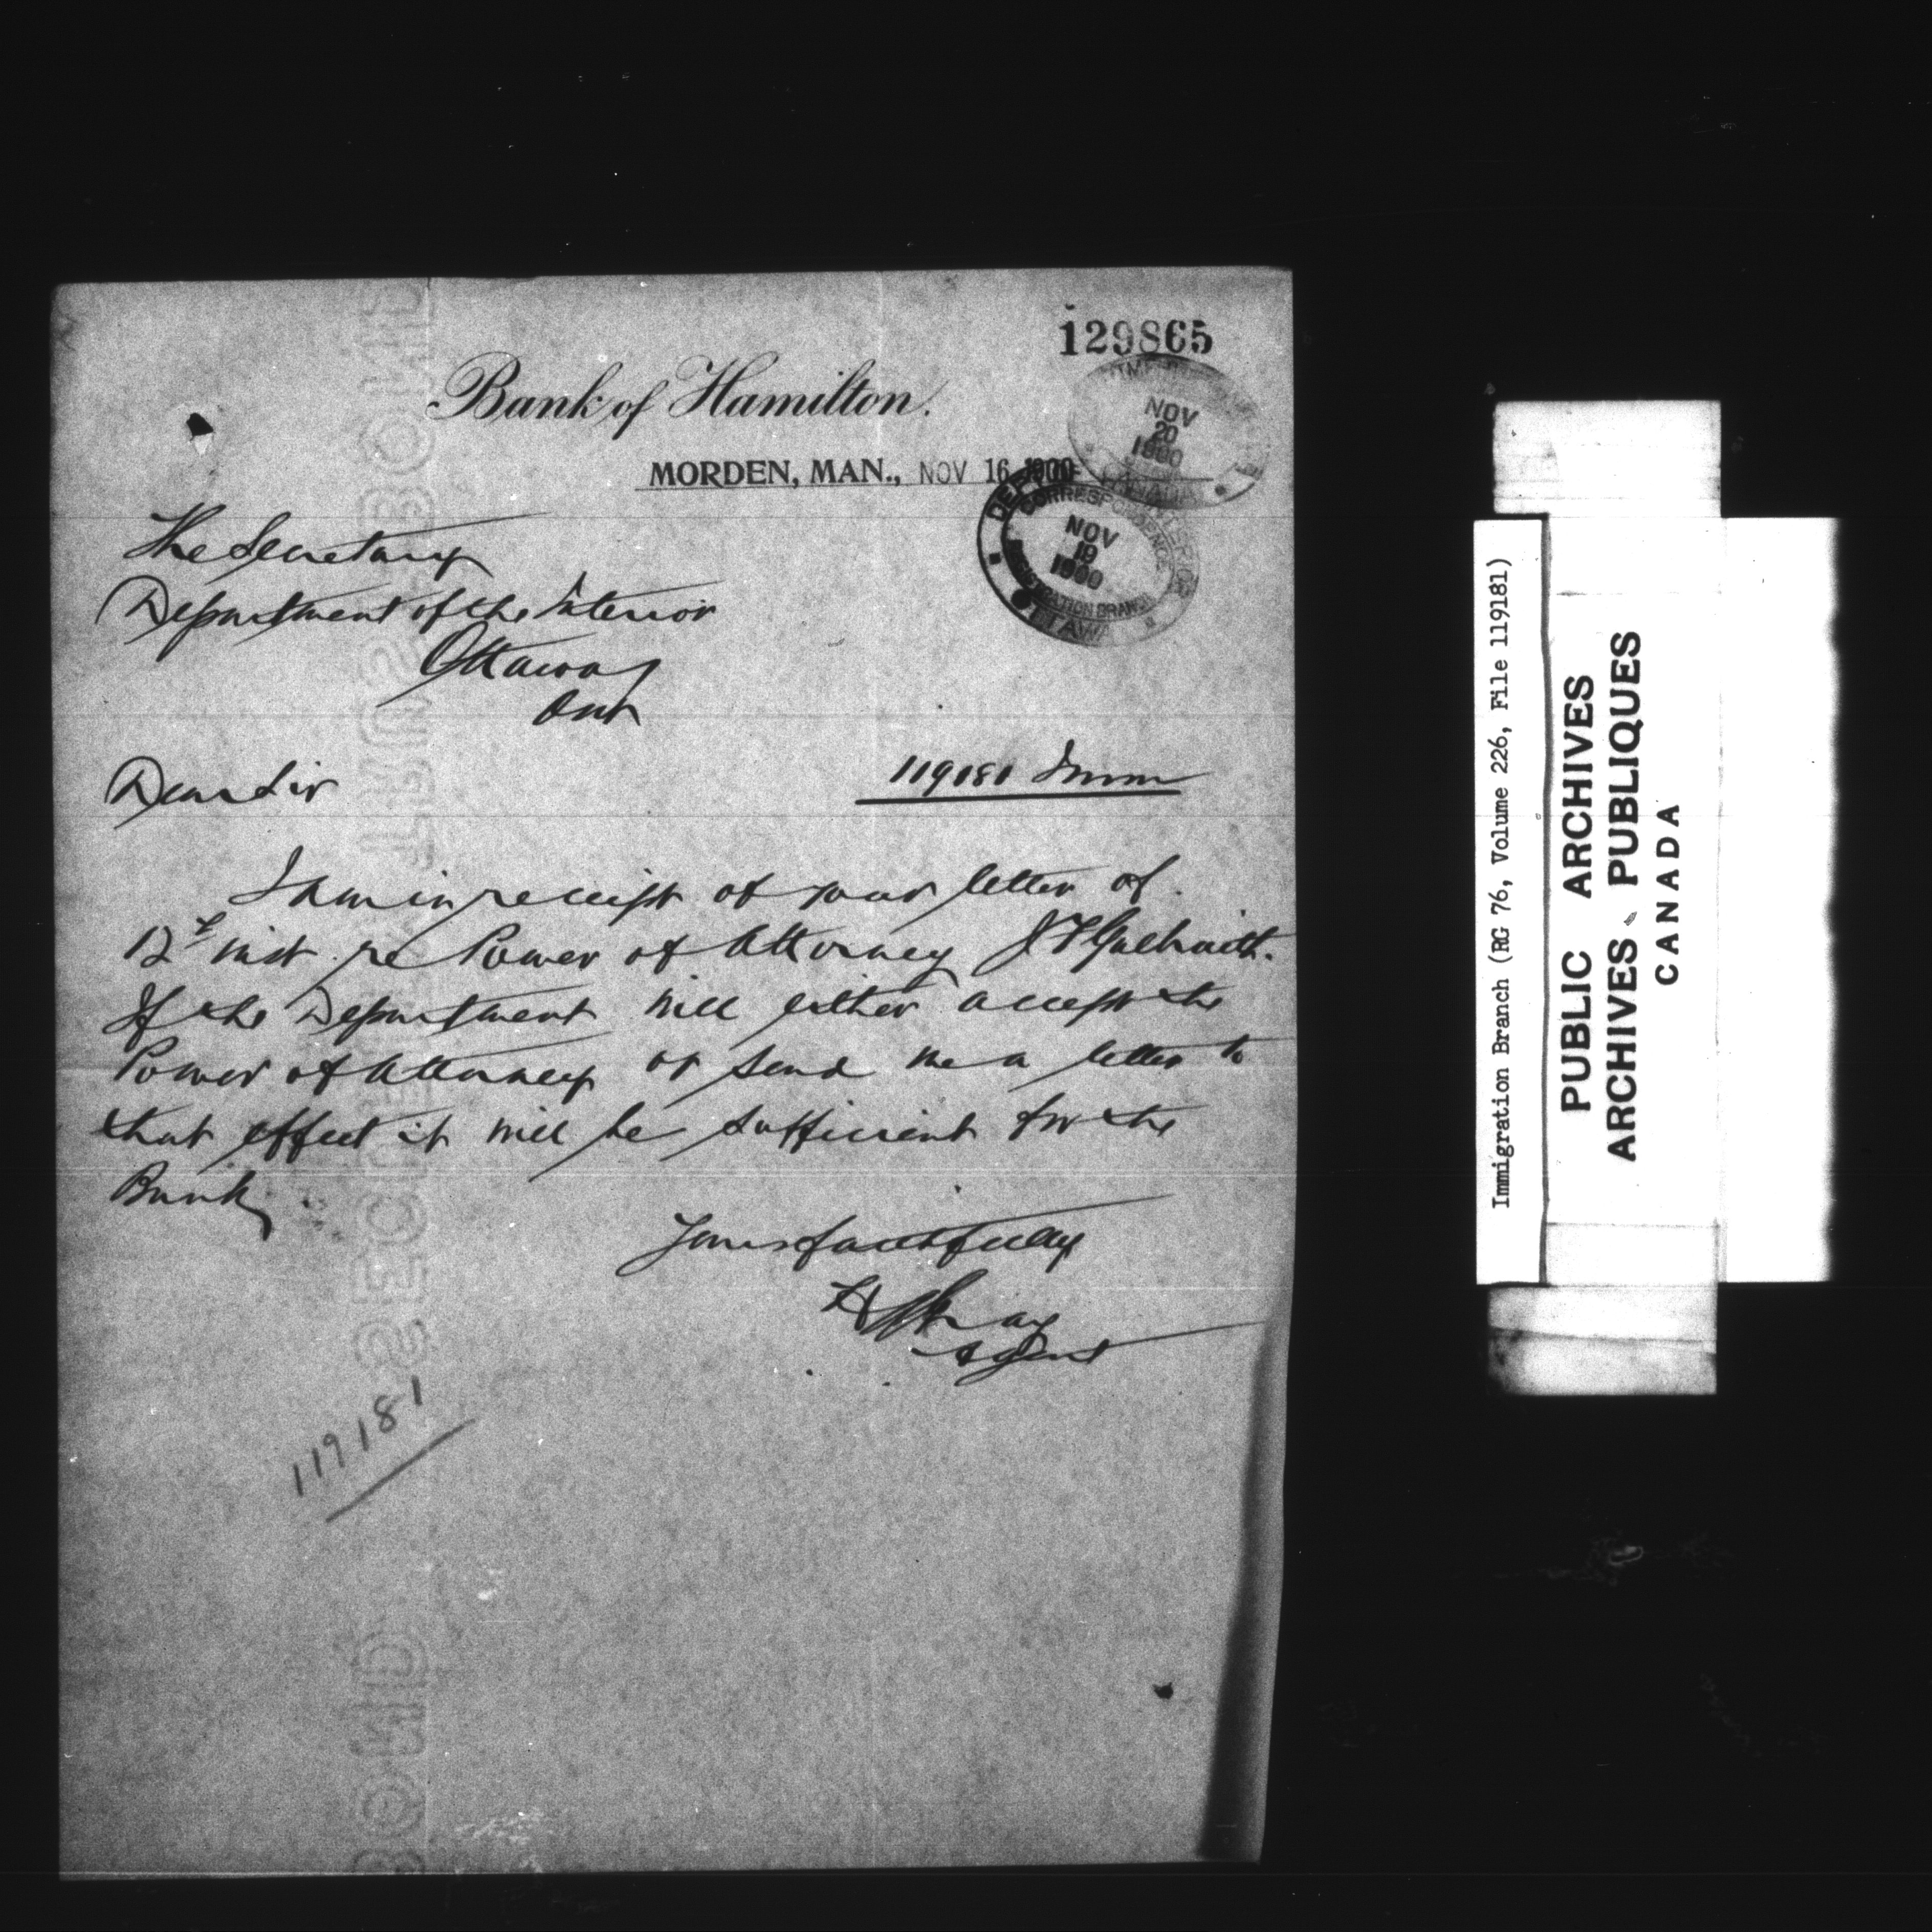 129865
Bank of Hamilton.
MORDEN, MAN., NOV 16 1900
NOV
20
1900
CANADA
CORRESPONDENCE
NOV
19
1900
REGISTRATION BRANCH
OTTAWA
The Secretary
Department of the Interior
Ottawa
Ont
Dear Sir
119181 Imm
I am in receipt of your letter of
12th inst re Power of Attorney J F Galbraith.
If the Department will either accept the
Power of Attorney or send me a letter to
that effect it will be sufficient for the
Bank
Yours faithfully
Agent
119181
Immigration Branch (RG 76, Volume 226, File 119181)
PUBLIC ARCHIVES
ARCHIVES PUBLIQUES
CANADA